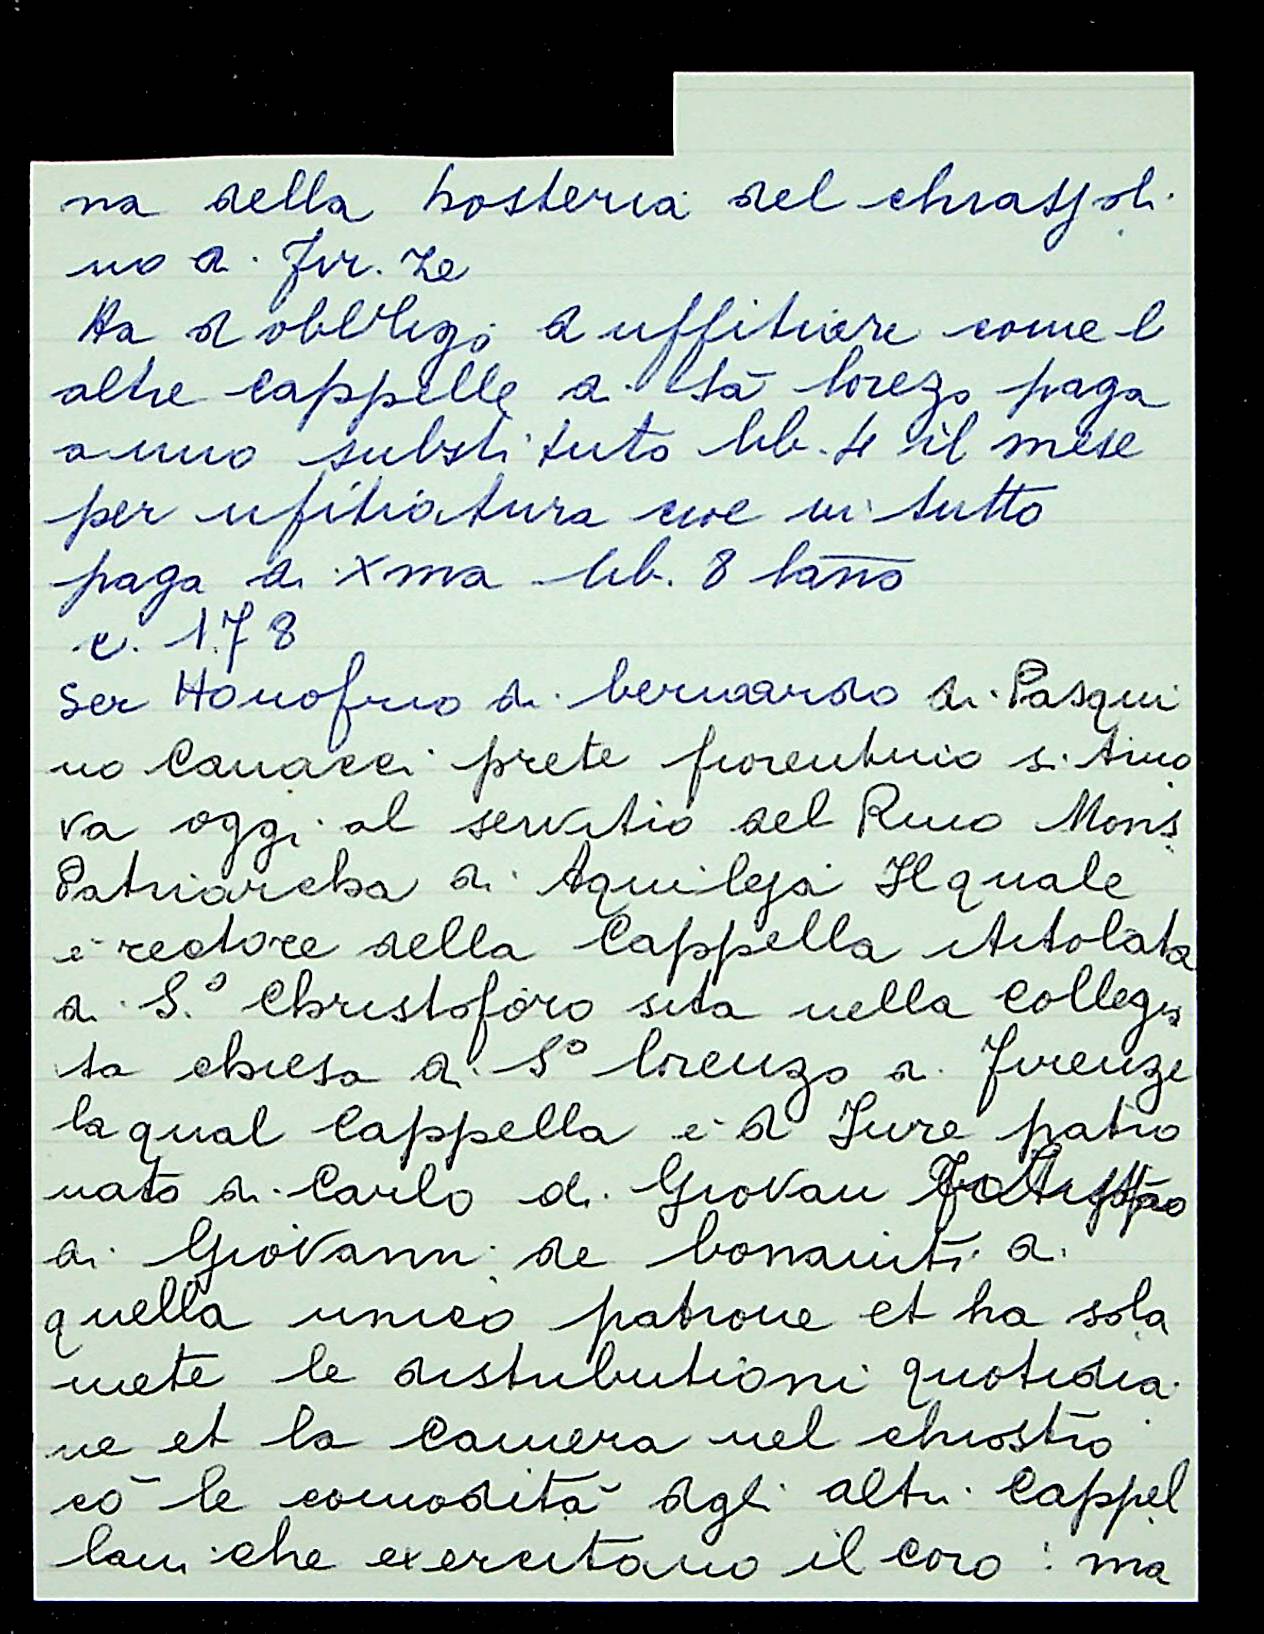 na della hosteria del chiassoli
no di Fir.ze
Ha d obbligo d uffitiare come l
altre cappelle di sā lorēzo paga
a uno substituto lib. 4 il mese
per ufitiatura cioe in tutto
paga di Xma lib. 8 lanno
c. 178
Ser Honofrio di bernardo di Pasqui
no Canacci prete fiorentino si truo
va oggi al servitio del Rmo Mons.
Patriarcha di Aquileja Il quale
è rectore della Cappella ititolata
di S.º Christoforo sita nella collegia
ta chiesa di Sº lorenzo di Firenze
la qual Cappella è d Jure patro
nato di Carlo di Giovan
di Giovanni de bonainti di
quella unico patrone et ha sola
mēte le distributioni quotidia
ne et la Camera nel chiostro
cō le comodità dgli altri Cappel
lani che exercitano il coro : ma